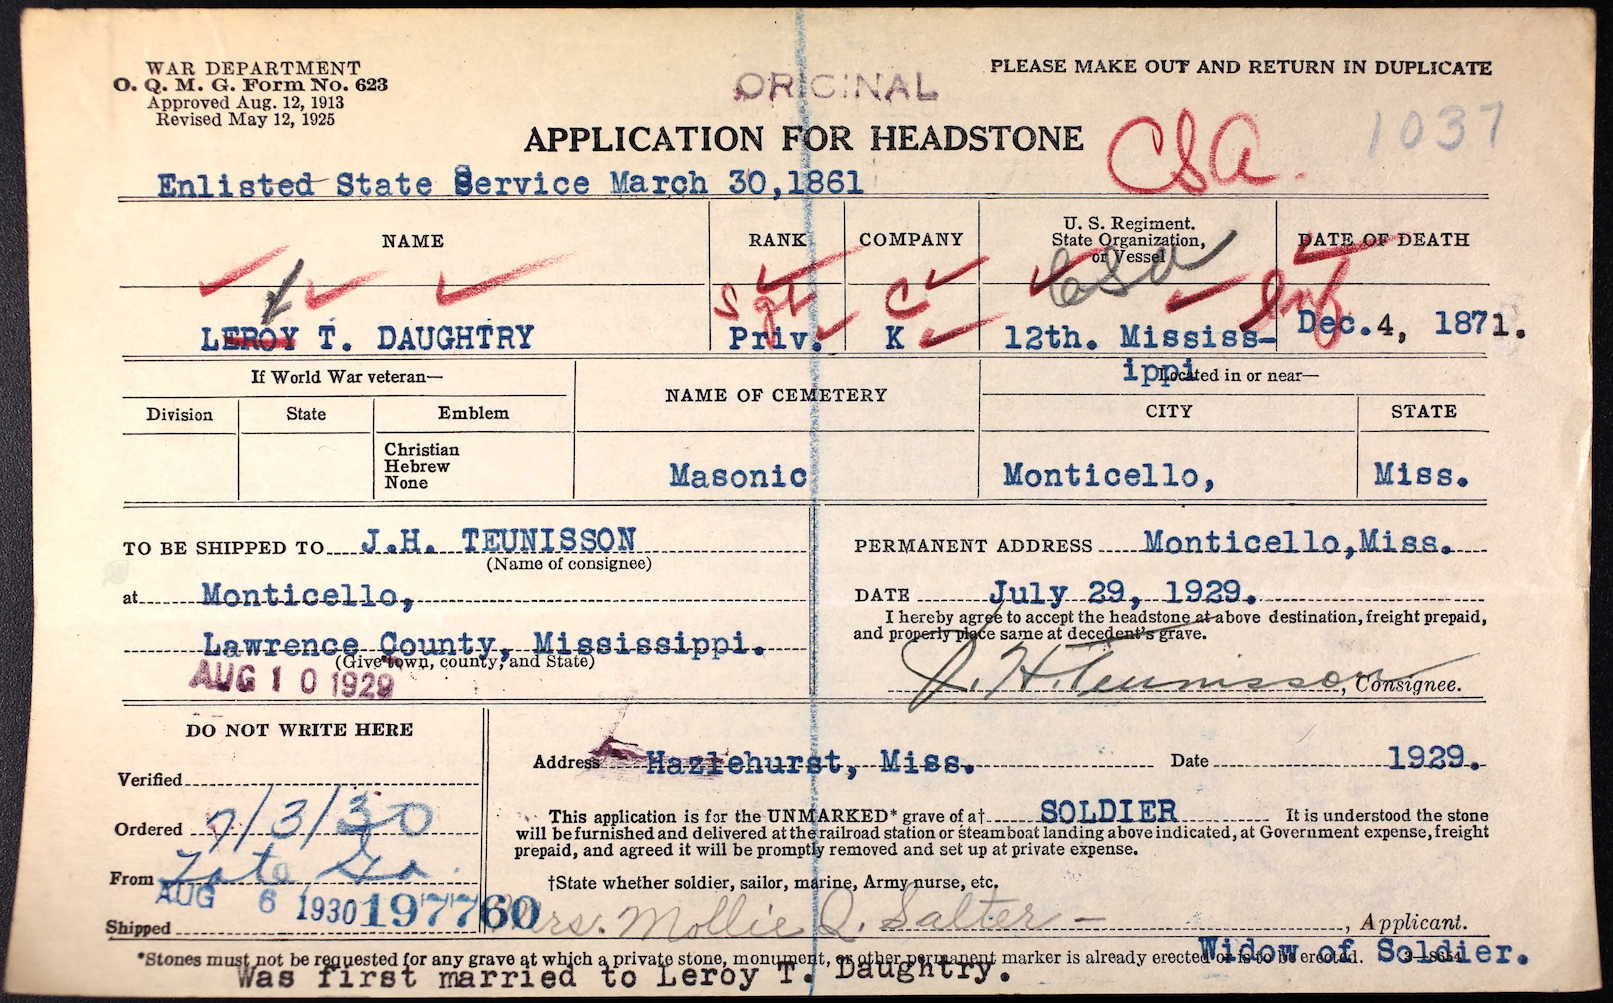 WAR DEPARTMENT
O. Q. M. G. Form No. 623
Approved Aug. 12, 1913
Revised May 12, 1925
ORIGINAL
PLEASE MAKE OUT AND RETURN IN DUPLICATE
APPLICATION FOR HEADSTONE
CSA.
1037
Enlisted State Service March 30,1861
NAME
RANK
COMPANY
U. S. Regiment.
State Organization,
or Vessel
DATE OF DEATH
CSA
Sgt
C
Inf
LEROY T. DAUGHTRY
Priv.
K
12th. Mississ-
ippi
Dec.4, 1871.
If World War veteran—
NAME OF CEMETERY
Located in or near—
Division
State
Emblem
CITY
STATE
Christian
Hebrew
None
Masonic
Monticello,
Miss.
TO BE SHIPPED TO J.H. TEUNISSON
(Name of consignee)
at Monticello,
Lawrence County, Mississippi.
(Give town, county, and State)
AUG 10 1929
PERMANENT ADDRESS Monticello,Miss.
DATE July 29, 1929.
I hereby agree to accept the headstone at above destination, freight prepaid,
and properly place same at decedent's grave.
J. H. Teunisson, Consignee.
DO NOT WRITE HERE
Verified
Ordered 7/3/30
From Tate Ga.
AUG 6 1930 197760
Shipped
Address Hazlehurst, Miss. Date 1929.
This application is for the UNMARKED* grave of a† SOLDIER It is understood the stone
will be furnished and delivered at the railroad station or steamboat landing above indicated, at Government expense, freight
prepaid, and agreed it will be promptly removed and set up at private expense.
†State whether soldier, sailor, marine, Army nurse, etc.
Mrs. Mollie Q. Salter —, Applicant.
Widow of Soldier.
*Stones must not be requested for any grave at which a private stone, monument, or other permanent marker is already erected or is to be erected. 3—8654
Was first married to Leroy T. Daughtry.